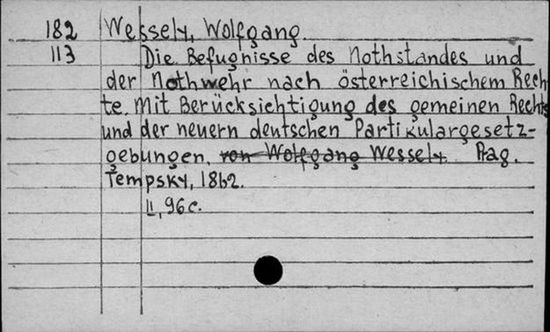 182 Wessely, Wolfgang.
113 Die Befugnisse des Nothstandes und
der Nothwehr nach österreichischem Rech
te. Mit Berücksichtigung des gemeinen Rechts
und der neuern deutschen Partikulargesetz-
gebungen. von Wolfgang Wessely. Prag.
Tempsky, 1862.
II, 96 c.